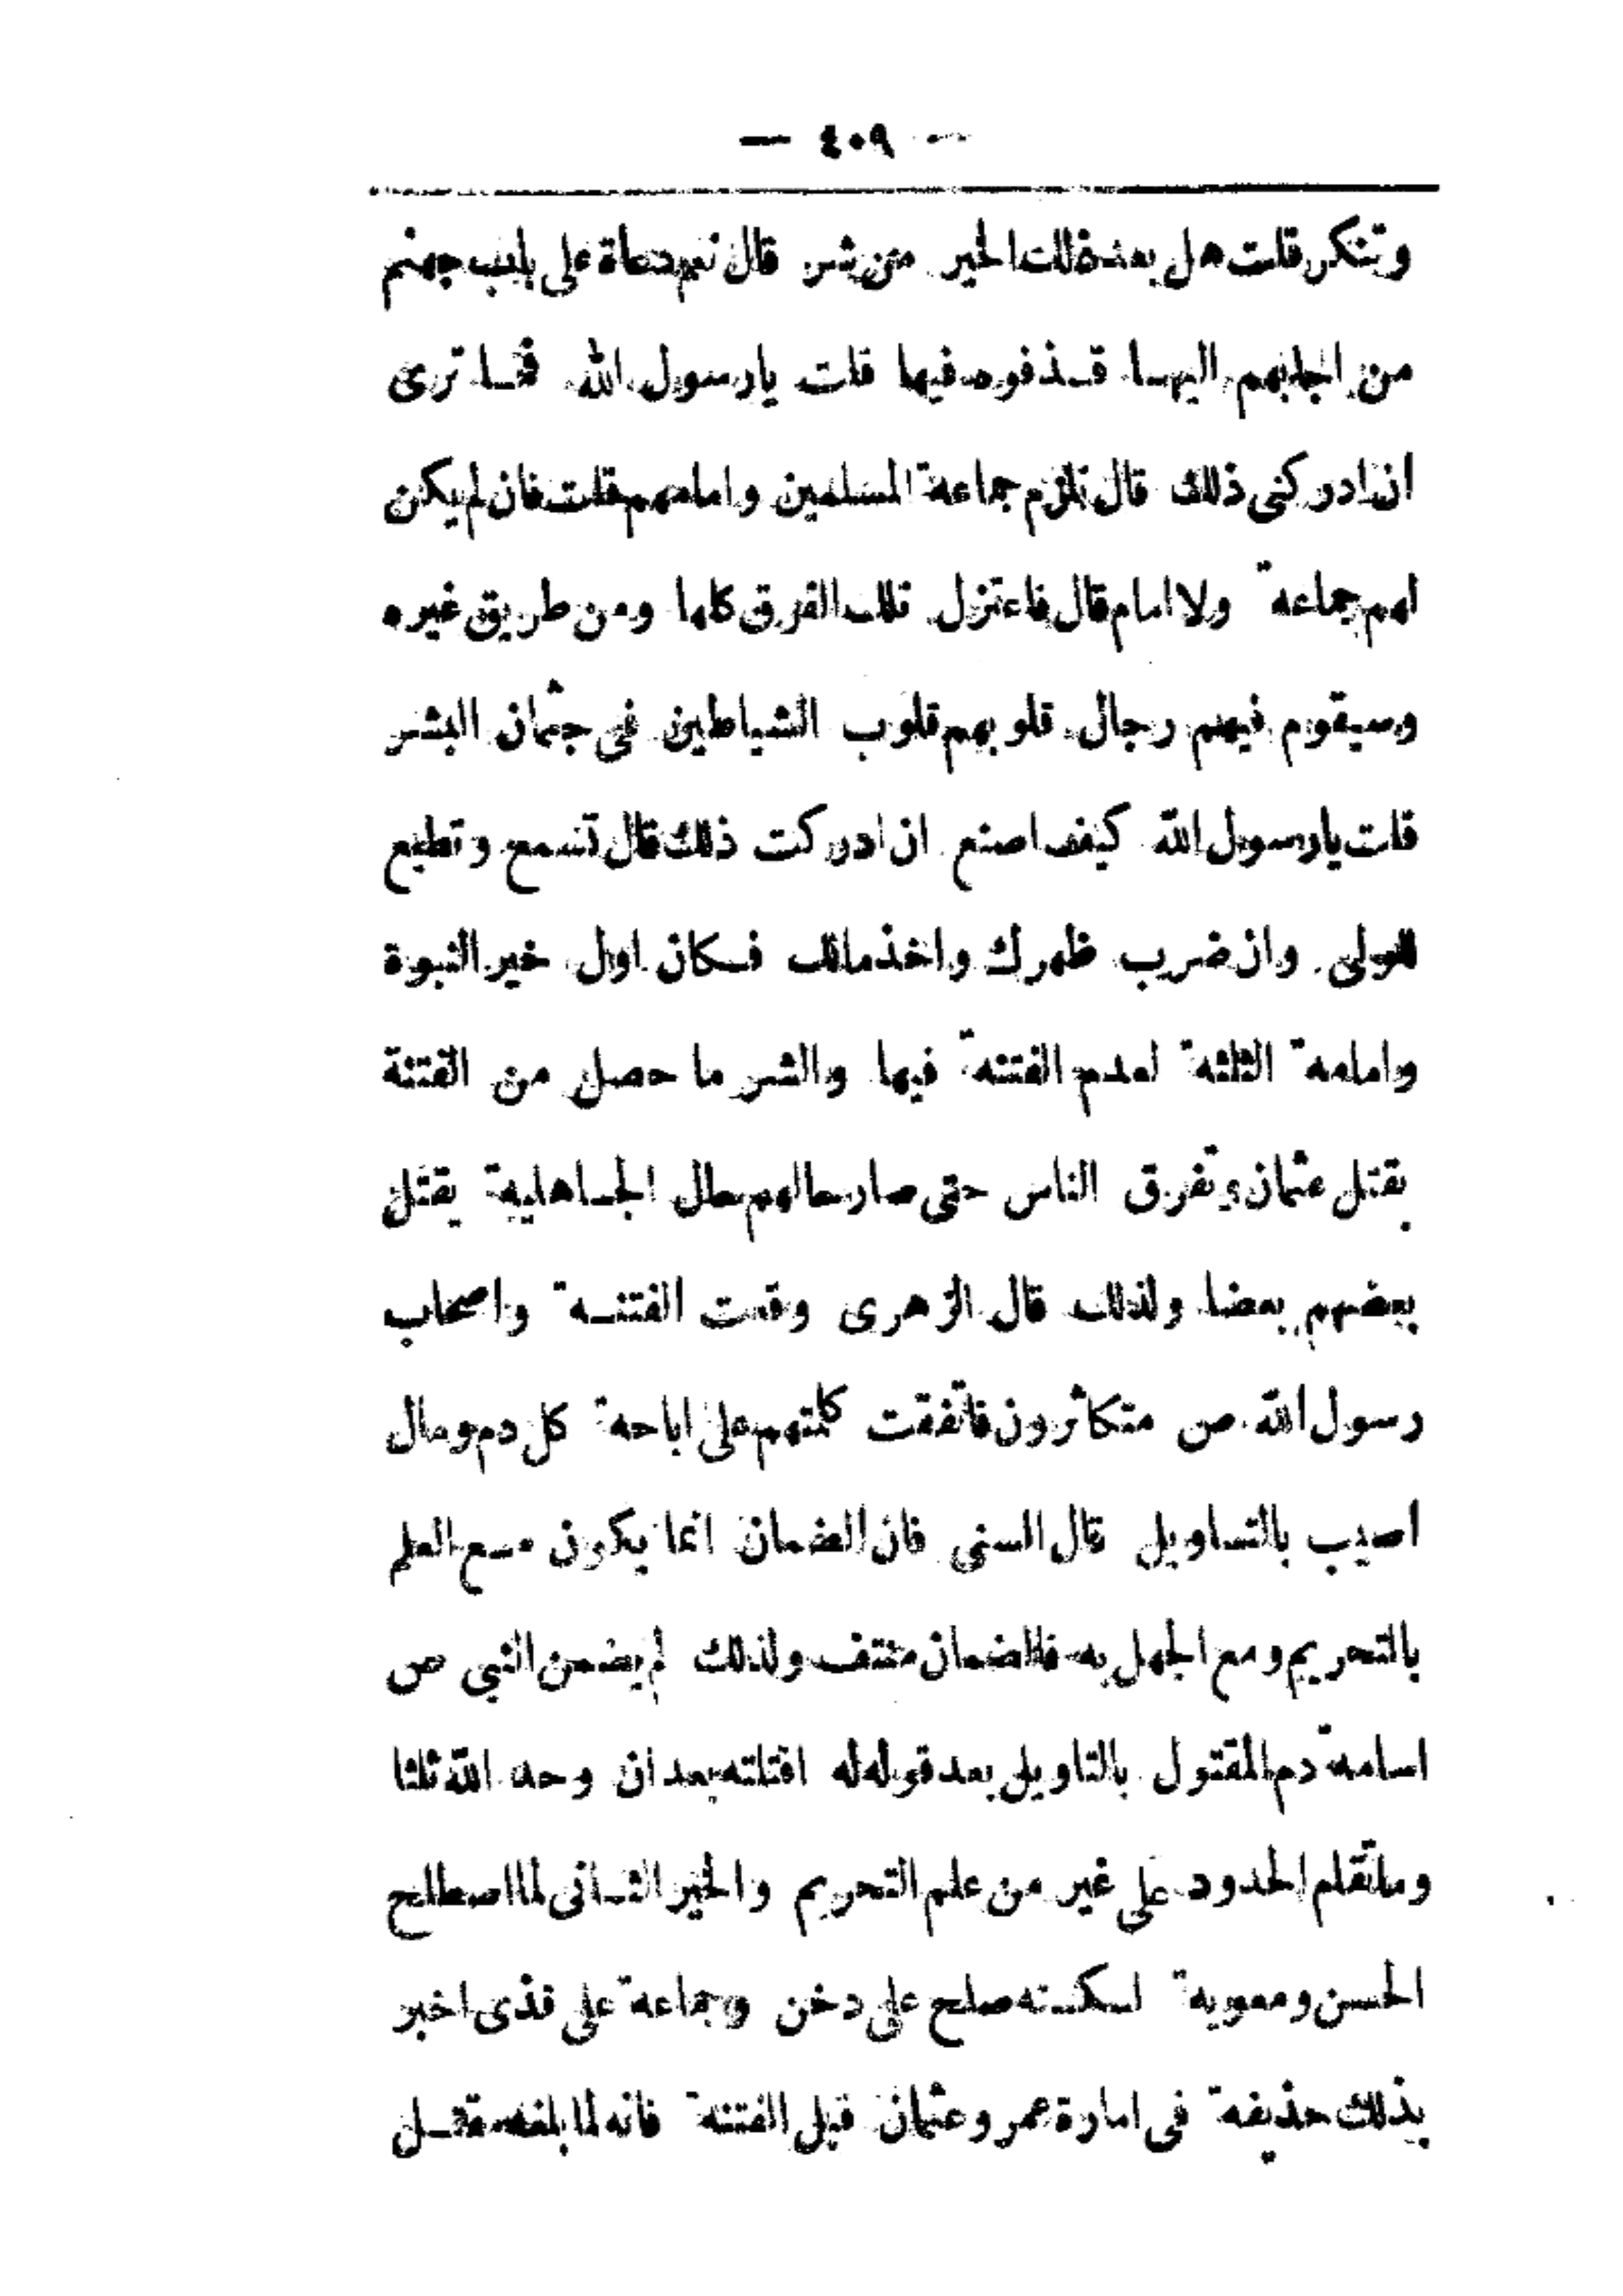 — ٤٠٩ —
وتنكر قلت هل بعد ذلك الخير من شر قال نعم دعاة على باب جهنم
من اجابهم اليها قذفوه فيها قلت يارسول الله فما ترى
ان ادركنى ذلك قال تلزم جماعة المسلمين وامامهم قلت فان لم يكن
لهم جماعة ولا امام قال فاعتزل تلك الفرق كلها ومن طريق غيره
وسيقوم فيهم رجال قلوبهم قلوب الشياطين فى جثمان البشر
قلت يارسول الله كيف اصنع ان ادركت ذلك قال تسمع وتطيع
للولى وان ضرب ظهرك واخذ مالك فكان اول خير النبوة
وامامة الثلثة لعدم الفتنة فيها والشر ما حصل من الفتنة
بقتل عثمان وتفرق الناس حتى صار حالهم حال الجاهلية يقتل
بعضهم بعضا ولذلك قال الزهرى وقعت الفتنة واصحاب
رسول الله ص متكاثرون فاتفقت كلمتهم على اباحة كل دم ومال
اصيب بالتساويل قال السنى فان الضمان انما يكون مع العلم
بالتحريم ومع الجهل به فالضمان منتف ولذلك لم يضمن النبى ص
اسامة دم المقتول بالتاويل بعد قوله له اقتلته بعد ان وحد الله ثلثا
وماتقام الحدود على غير من علم التحريم والخير الثانى لما اصطلح
الحسن ومعوية لسكنه صلح على دخن وجماعة على قذى اخبر
بذلك حذيفة فى امارة عمر وعثمان قبل الفتنة فانه لما بلغه مقتل